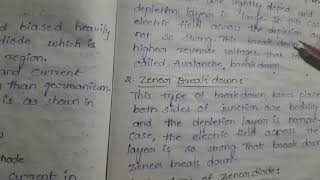 d biased heavily
diode which is
region.
and current
than germanicum.
is as shown in
hode
current in
lightly doped and
depletion layer is large. In this
electric field across the depletion layer
not so strong. This break down
higher reverse voltages. That
called Avalanche break down.
2. Zener Break down:
This type of breakdown takes place
both sides of junction are heavily
and the depletion layer is narrow
Case, the electric field across the
layer is so strong that break down
zener break down.
of Zener diode: